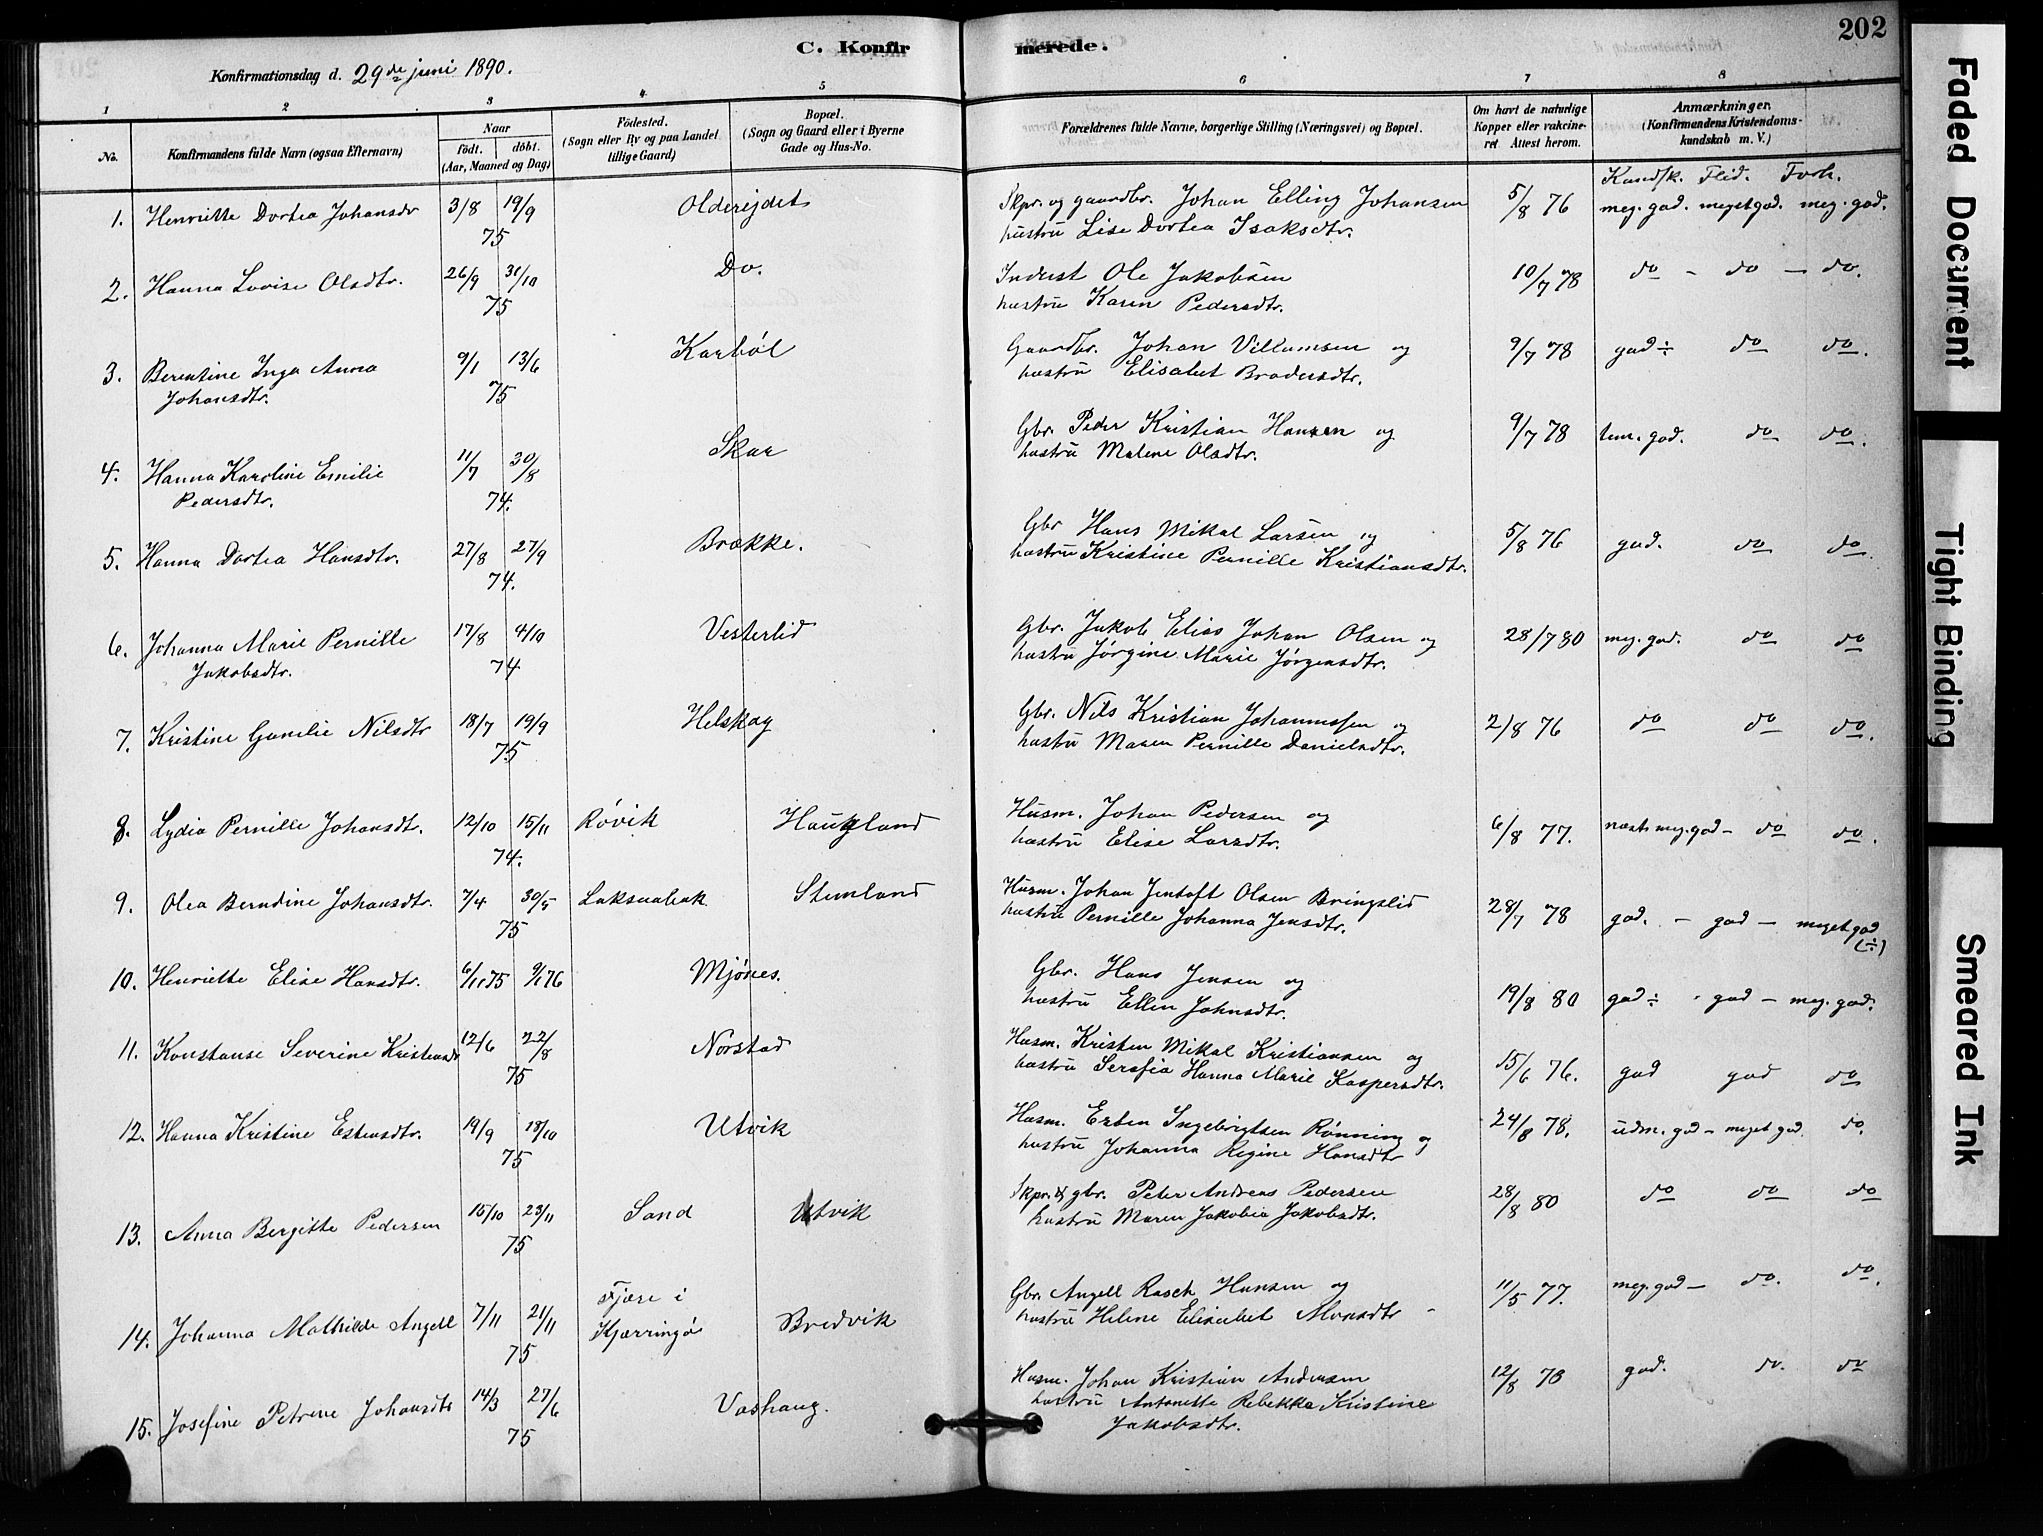 202
C. Konfirmerede.
Konfirmationsdag d. 29de juni 1890.
1 2 3 4 5 6 7 8
No. Konfirmandens fulde Navn (ogsaa Efternavn) Naar födt. döbt. (Aar, Maaned og Dag) Födested. (Sogn eller By og paa Landet tillige Gaard) Bopæl. (Sogn og Gaard eller i Byerne Gade og Hus-No. Forældrenes fulde Navne, borgerlige Stilling (Næringsvei) og Bopæl. Om havt de naturlige Kopper eller vakcineret Attest herom. Anmærkninger. (Konfirmandens Kristendomskundskab m. V.)
Kundsk. Flid. Forh.
1. Henriette Dortea Johansdr 3/8 19/9 75 Olderejdet Skpr. og gaardbr. Johan Elling Johansen 5/8 76 meg. god. meget god. meg. god.
hustru Lise Dortea Isaksdtr.
2. Hanna Lovise Olsdtr. 26/9 31/10 75 Do. Inderst Ole Jakobsen 10/7 78 do - do - do.
hustru Karen Pedersdtr.
3. Berentine Inga Anna 9/1 13/6 75 Karbøl Gaardbr. Johan Villumsen og 9/7 78 god ÷ do do.
Johansdtr. hustru Elisabet Brodersdtr.
4. Hanna Karoline Emilie 11/7 30/8 74. Skar Gbr. Peder Kristian Hansen og 9/7 78 tem. god. do do.
Pedersdtr. hustru Malene Olsdtr.
5. Hanna Dortea Hansdtr. 27/8 27/9 74. Brække. Gbr Hans Mikal Larsen og 5/8 76 god. do do.
hustru Kristine Pernille Kristiansdtr.
6. Johanna Marie Pernille 17/8 4/10 74 Vesterlid Gbr. Jakob Elias Johan Olsen og 28/7 80 meg. god. do do
Jakobsdtr. hustru Jørgine Marie Jørgensdtr.
7. Kristine Gunelie Nilsdtr 18/7 19/9 75 Helskag Gbr. Nils Kristian Johannessen og 2/8 76 do do do.
hustru Maren Pernille Danielsdtr.
8. Lydia Pernille Johansdtr. 12/10 15/11 74. Røvik Haugland Husm. Johan Pedersen og 6/8 77. næst meg. god - do do.
hustru Elise Larsdtr.
9. Olea Berndine Johansdtr. 7/4 30/5 75 Laksaabak Stemland Husm. Johan Jentoft Olsen Bringslid 28/7 78 god. - god - meget god (÷)
hustru Pernille Johanna Jensdtr.
10. Henriette Elise Hansdtr. 6/11 75 9/1 76 Mjønes. Gbr. Hans Jensen og 19/8 80 god ÷ - god - meg. god.
hustru Ellen Johnsdtr.
11. Konstanse Severine Kristensdr 12/6 22/8 75 Norstad Husm. Kristen Mikal Kristiansen og 15/6 76. god god do
hustru Serafia Hanna Marie Kaspersdtr.
12. Hanna Kristine Estensdtr. 19/9 18/10 75 Utvik Husm. Esten Ingebrigtsen Rønning og 24/8 78. udm. god - meget god. do.
hustru Johanna Regine Hansdtr
13. Anna Bergitte Pedersen 15/10 23/11 75 Sand Utvik Skpr. & gbr. Peter Andreas Pedersen 28/8 80 do do do
hustru Maren Jakobia Jakobsdtr.
14. Johanna Mathilde Angell 7/11 21/11 75 Fjære i Kjærringø Bredvik Gbr Angell Rasch Hansen og 11/5 77. meg. god - do. do.
hustru Helene Elisabet Monsdtr -
15. Josefine Petrine Johansdtr 14/3 27/6 75 Vashaug. Husm. Johan Kristian Andersen 12/8 78 god. do. do
hustru Antonette Rebekka Kristine
Jakobsdtr.
Faded Document
Tight Binding
Smeared Ink